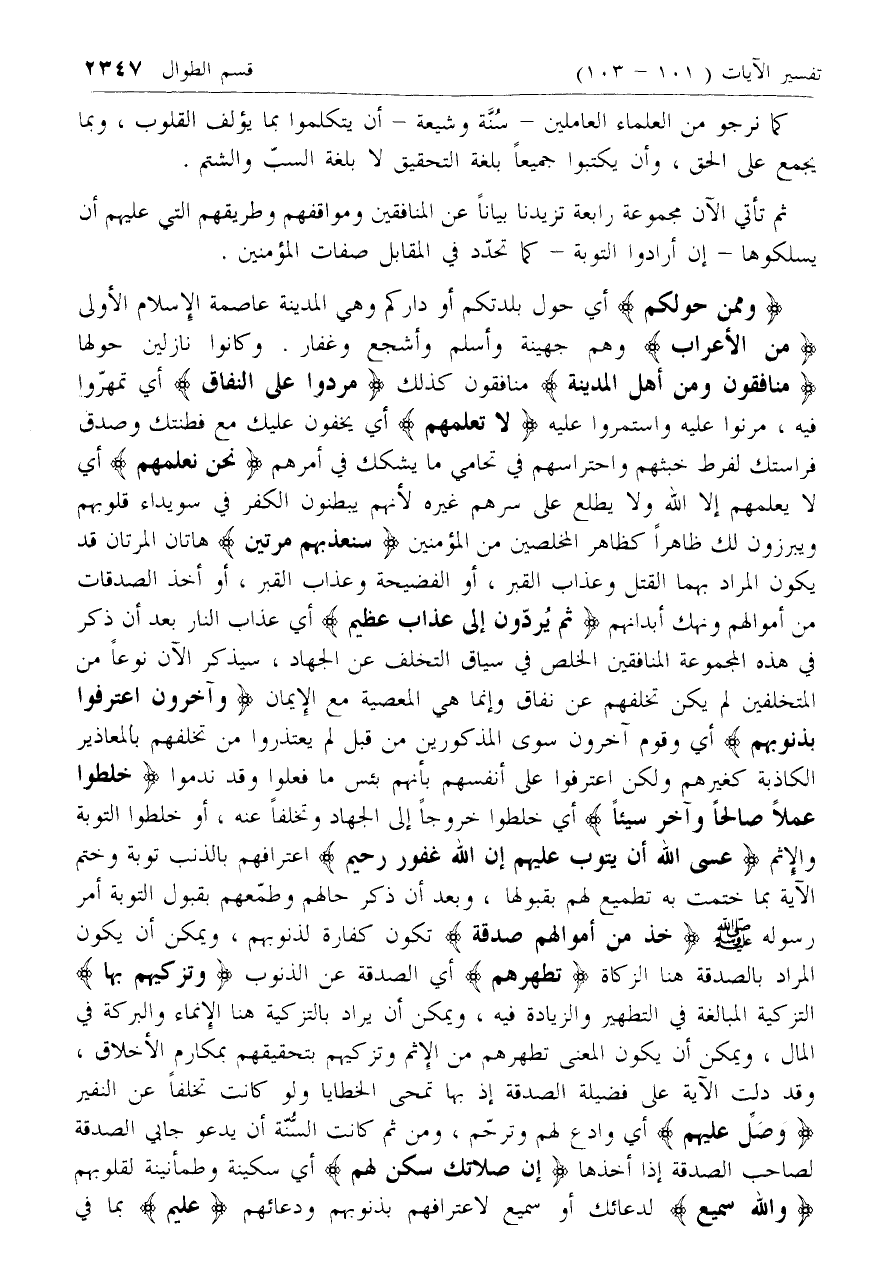 تفسير الآيات ( ١٠١ - ١٠٣ )
قسم الطوال ٢٣٤٧
كما نرجو من العلماء العاملين - سُنَّة وشيعة - أن يتكلموا بما يؤلف القلوب ، وبما
يجمع على الحق ، وأن يكتبوا جميعاً بلغة التحقيق لا بلغة السبّ والشتم .
ثم تأتي الآن مجموعة رابعة تزيدنا بياناً عن المنافقين ومواقفهم وطريقهم التي عليهم أن
يسلكوها - إن أرادوا التوبة - كما تحدّد في المقابل صفات المؤمنين .
﴿ وممن حولكم ﴾ أي حول بلدتكم أو داركم وهي المدينة عاصمة الإسلام الأولى
﴿ من الأعراب ﴾ وهم جهينة وأسلم وأشجع وغفار . وكانوا نازلين حولها
﴿ منافقون ومن أهل المدينة ﴾ منافقون كذلك ﴿ مردوا على النفاق ﴾ أي تمهّروا
فيه ، مرنوا عليه واستمروا عليه ﴿ لا تعلمهم ﴾ أي يخفون عليك مع فطنتك وصدق
فراستك لفرط خبثهم واحتراسهم في تحامي ما يشكك في أمرهم ﴿ نحن نعلمهم ﴾ أي
لا يعلمهم إلا الله ولا يطلع على سرهم غيره لأنهم يبطنون الكفر في سويداء قلوبهم
ويبرزون لك ظاهراً كظاهر المخلصين من المؤمنين ﴿ سنعذبهم مرتين ﴾ هاتان المرتان قد
يكون المراد بهما القتل وعذاب القبر ، أو الفضيحة وعذاب القبر ، أو أخذ الصدقات
من أموالهم ونهك أبدانهم ﴿ ثم يُردّون إلى عذاب عظيم ﴾ أي عذاب النار بعد أن ذكر
في هذه المجموعة المنافقين الخلص في سياق التخلف عن الجهاد ، سيذكر الآن نوعاً من
المتخلفين لم يكن تخلفهم عن نفاق وإنما هي المعصية مع الإيمان ﴿ وآخرون اعترفوا
بذنوبهم ﴾ أي وقوم آخرون سوى المذكورين من قبل لم يعتذروا من تخلفهم بالمعاذير
الكاذبة كغيرهم ولكن اعترفوا على أنفسهم بأنهم بئس ما فعلوا وقد ندموا ﴿ خلطوا
عملاً صالحاً وآخر سيئاً ﴾ أي خلطوا خروجاً إلى الجهاد وتخلفاً عنه ، أو خلطوا التوبة
والإثم ﴿ عسى الله أن يتوب عليهم إن الله غفور رحيم ﴾ اعترافهم بالذنب توبة وختم
الآية بما ختمت به تطميع لهم بقبولها ، وبعد أن ذكر حالهم وطمّعهم بقبول التوبة أمر
رسوله ﷺ ﴿ خذ من أموالهم صدقة ﴾ تكون كفارة لذنوبهم ، ويمكن أن يكون
المراد بالصدقة هنا الزكاة ﴿ تطهرهم ﴾ أي الصدقة عن الذنوب ﴿ وتزكيهم بها ﴾
التزكية المبالغة في التطهير والزيادة فيه ، ويمكن أن يراد بالتزكية هنا الإنماء والبركة في
المال ، ويمكن أن يكون المعنى تطهرهم من الإثم وتزكيهم بتحقيقهم بمكارم الأخلاق ،
وقد دلت الآية على فضيلة الصدقة إذ بها تمحى الخطايا ولو كانت تخلفاً عن النفير
﴿ وَصَلِّ عليهم ﴾ أي وادع لهم وترحّم ، ومن ثم كانت السُّنّة أن يدعو جابي الصدقة
لصاحب الصدقة إذا أخذها ﴿ إن صلاتك سكن لهم ﴾ أي سكينة وطمأنينة لقلوبهم
﴿ والله سميع ﴾ لدعائك أو سميع لاعترافهم بذنوبهم ودعائهم ﴿ عليم ﴾ بما في